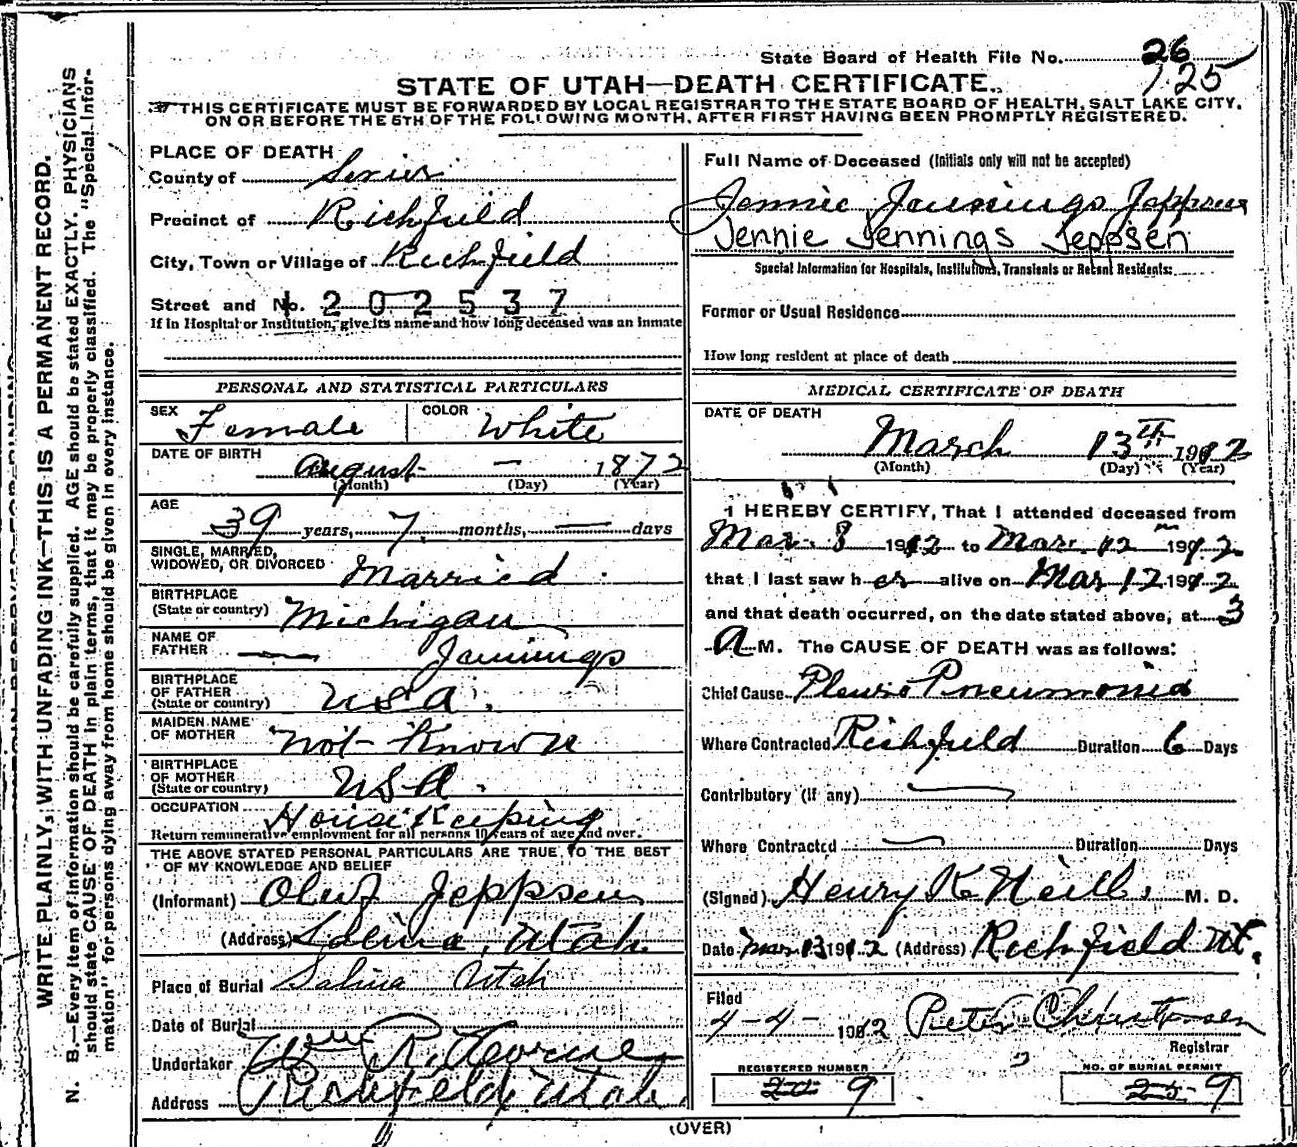 State Board of Health File No. 26
125
STATE OF UTAH—DEATH CERTIFICATE.
THIS CERTIFICATE MUST BE FORWARDED BY LOCAL REGISTRAR TO THE STATE BOARD OF HEALTH, SALT LAKE CITY,
ON OR BEFORE THE 5TH OF THE FOLLOWING MONTH, AFTER FIRST HAVING BEEN PROMPTLY REGISTERED.
WRITE PLAINLY, WITH UNFADING INK—THIS IS A PERMANENT RECORD.
N. B.—Every item of information should be carefully supplied. AGE should be stated EXACTLY. PHYSICIANS
should state CAUSE OF DEATH in plain terms, that it may be properly classified. The "Special Infor-
mation" for persons dying away from home should be given in every instance.
PLACE OF DEATH
County of Sevier
Precinct of Richfield
City, Town or Village of Richfield
Street and No. 202537
If in Hospital or Institution, give its name and how long deceased was an inmate
PERSONAL AND STATISTICAL PARTICULARS
SEX Female COLOR White
DATE OF BIRTH August — 1872
(Month) (Day) (Year)
AGE
39 years, 7 months, — days
SINGLE, MARRIED,
WIDOWED, OR DIVORCED Married
BIRTHPLACE
(State or country) Michigan
NAME OF
FATHER — Jennings
BIRTHPLACE
OF FATHER
(State or country) USA.
MAIDEN NAME
OF MOTHER Not Known
BIRTHPLACE
OF MOTHER
(State or country) USA.
OCCUPATION House Keeping
Return remunerative employment for all persons 10 years of age and over.
THE ABOVE STATED PERSONAL PARTICULARS ARE TRUE TO THE BEST
OF MY KNOWLEDGE AND BELIEF
(Informant) Oluf Jeppsen
(Address) Salina, Utah.
Place of Burial Salina Utah
Date of Burial
Undertaker Wm
Address Richfield Utah.
Full Name of Deceased (Initials only will not be accepted)
Jennie Jennings Jeppsen
Jennie Jennings Jeppsen
Special Information for Hospitals, Institutions, Transients or Recent Residents:
Former or Usual Residence
How long resident at place of death
MEDICAL CERTIFICATE OF DEATH
DATE OF DEATH
March 13th 1912
(Month) (Day) (Year)
I HEREBY CERTIFY, That I attended deceased from
Mar. 8 1912 to Mar. 12 1912
that I last saw her alive on Mar 12 1912
and that death occurred, on the date stated above, at 3
A M. The CAUSE OF DEATH was as follows:
Chief Cause Pleuro Pneumonia
Where Contracted Richfield Duration 6 Days
Contributory (if any) —
Where Contracted — Duration Days
(Signed) Henry K Neill, M. D.
Date Mar 13 1912 (Address) Richfield Ut.
Filed
4-4- 1912 Peter Christensen
Registrar
REGISTERED NUMBER 9
NO. OF BURIAL PERMIT 9
(OVER)